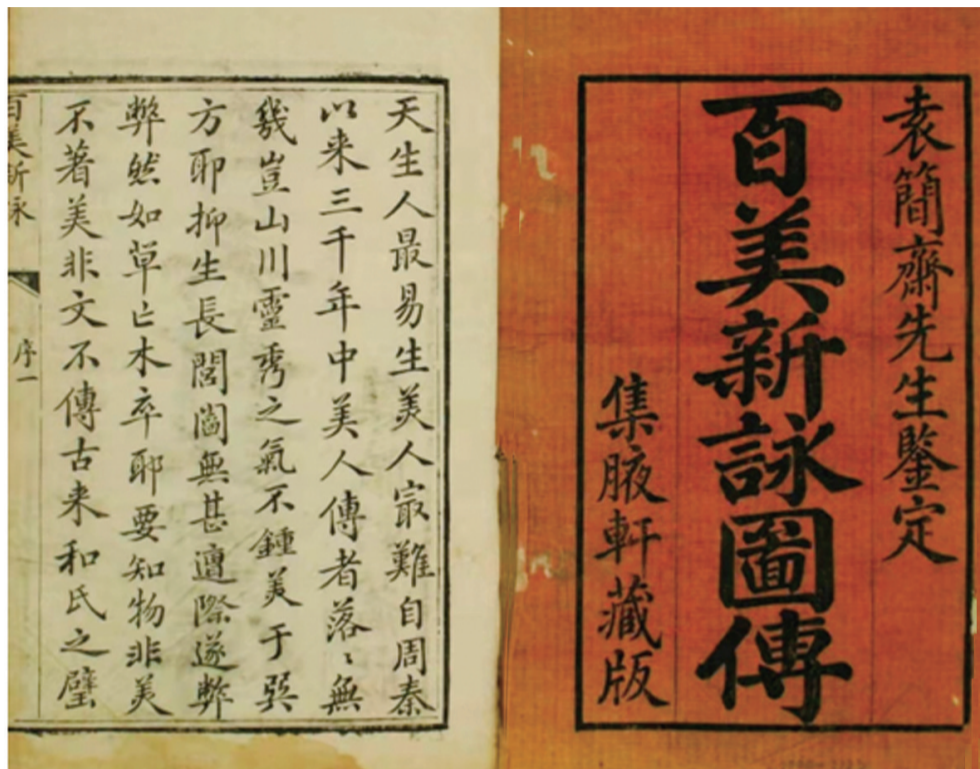 袁簡齋先生鑒定
百美新詠圖傳
集腋軒藏版
天生人最易生美人最難自周秦
以来三千年中美人傳者落〻無
幾豈山川靈秀之氣不鍾美于巽
方耶抑生長閭閻無甚遭際遂弊
弊然如草亡木卒耶要知物非美
不著美非文不傳古来和氏之璧
百美新詠
序一